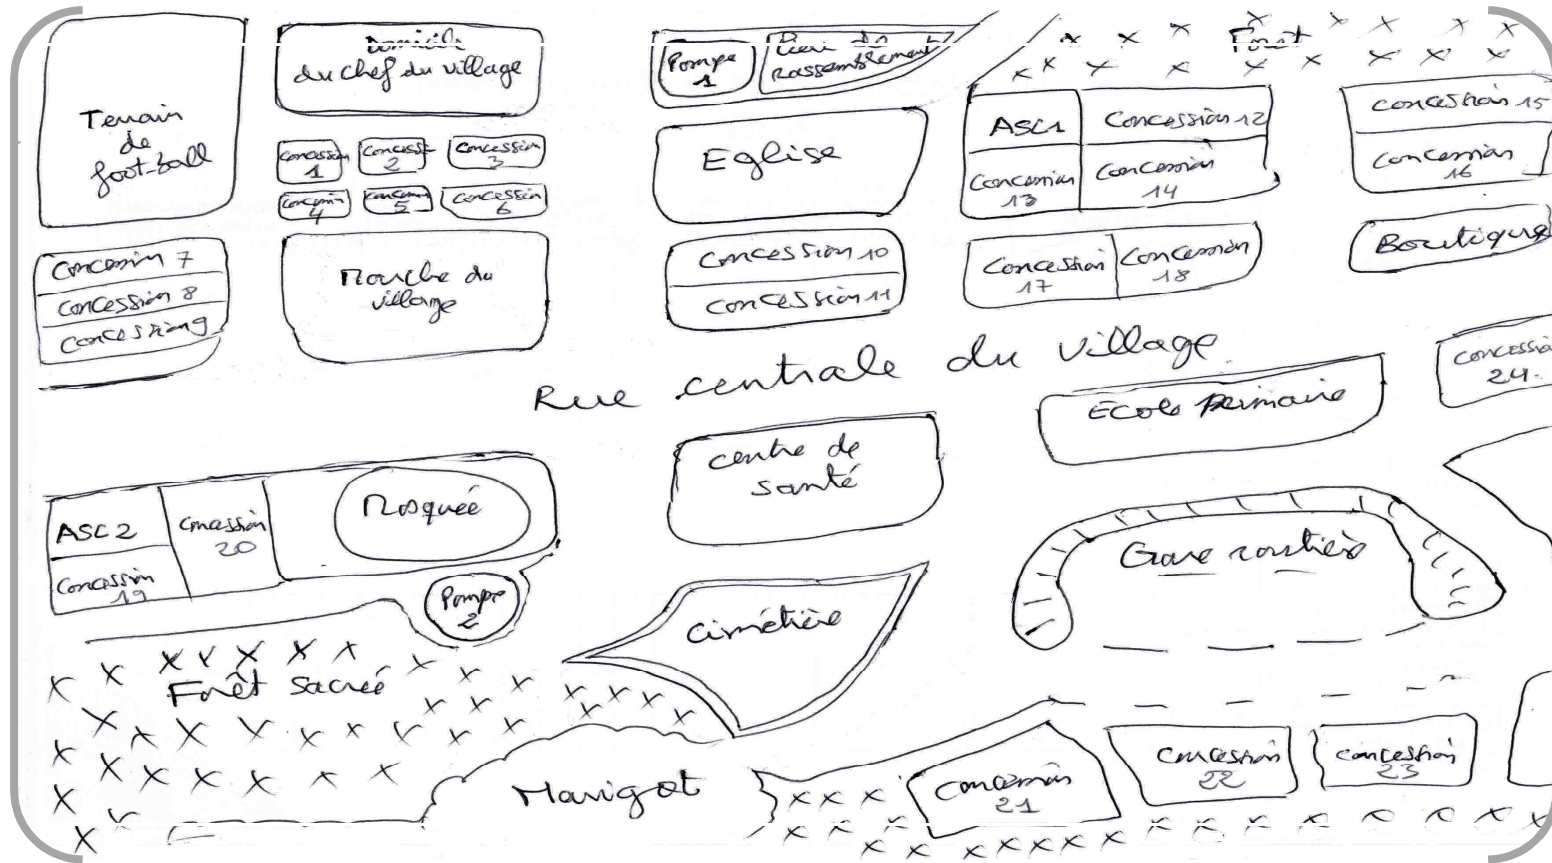 Terrain
de
foot-ball
Domicile
du chef du village
Concession
1
Concess
2
Concession
3
Concession
4
Concession
5
Concession
6
Concession 7
Concession 8
Concession 9
Mouche du
village
Pompe
1
Lieu de
rassemblement
Eglise
Concession 10
Concession 11
Forêt
ASC1
Concession 12
Concession
13
Concession
14
Concession 15
Concession
16
Concession
17
Concession
18
Boutique
Rue centrale du village
Ecole Primaire
Concessio
24
ASC 2
Concession
19
Concession
20
Mosquée
Pompe
2
Centre de
santé
Cimétière
Gare routière
Forêt sacrée
Marigot
Concession
21
Concession
22
Concession
23